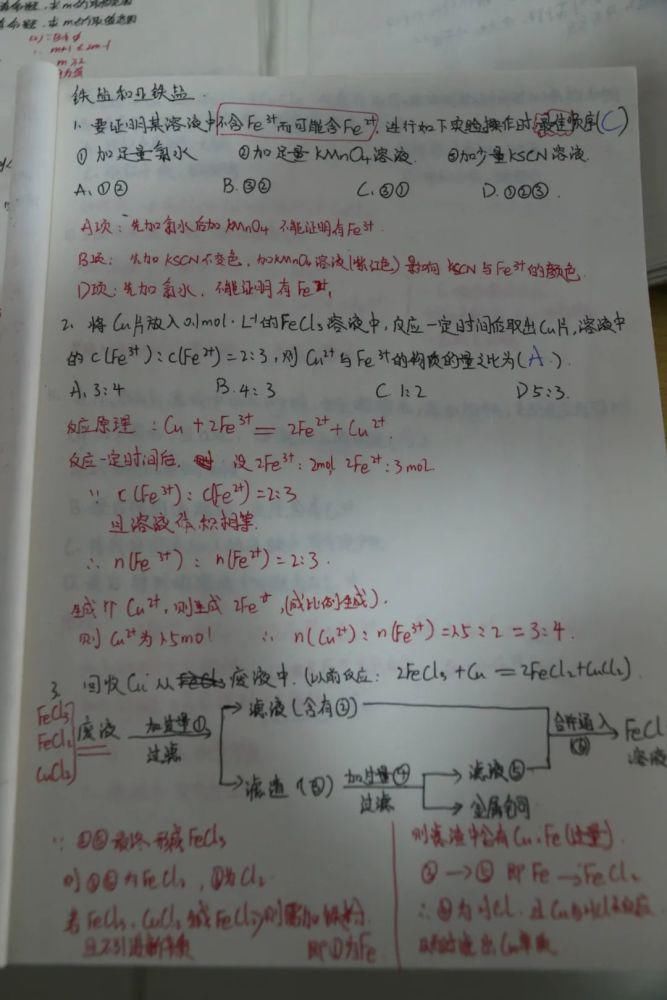 m+1≤2m-1
铁盐和亚铁盐
1. 要证明某溶液中不含Fe³⁺而可能含Fe²⁺,进行如下实验操作时,最佳顺序(C)
①加足量氯水 ②加足量KMnO₄溶液 ③加少量KSCN溶液
A.①② B.③② C.③① D.①②③.
A项:先加氯水后加KMnO₄不能证明有Fe³⁺.
B项:先加KSCN不变色,加KMnO₄溶液(紫红色)影响KSCN与Fe³⁺的颜色
D项:先加氯水,不能证明有Fe
2. 将Cu片放入0.1mol·L⁻¹的FeCl₃溶液中,反应一定时间后取出Cu片,溶液中
的c(Fe³⁺):c(Fe²⁺)=2:3,则Cu²⁺与Fe³⁺的物质的量之比为(A.)
A.3:4 B.4:3 C 1:2 D 5:3.
反应原理:Cu+2Fe³⁺=2Fe²⁺+Cu²⁺
反应一定时间后, 设2Fe³⁺:2mol, 2Fe²⁺:3mol.
∵ c(Fe³⁺):c(Fe²⁺)=2:3
且溶液体积相等.
∴ n(Fe³⁺):n(Fe²⁺)=2:3.
生成1个Cu²⁺,则生成2Fe²⁺,(成比例生成).
则Cu²⁺为1.5mol ∴ n(Cu²⁺):n(Fe³⁺)=1.5:2=3:4.
3. 回收Cu从废液中.(以前反应:2FeCl₃+Cu=2FeCl₂+CuCl₂)
FeCl₃
FeCl₂
CuCl₂
废液 加过量① 过滤
滤液(含有②)
合并通入⑥
FeCl
溶液
滤渣(③) 加过量④ 过滤
滤液⑤
金属铜
∵ ②⑤最终形成FeCl₃
则②⑤为FeCl₂,⑥为Cl₂
若FeCl₃、CuCl₂生成FeCl₂,则需加铁粉
且不引进新杂质 即①为Fe.
则滤渣中含有Cu、Fe(过量).
③→⑤即Fe→FeCl₂
∴ ④为HCl 且Cu与HCl不反应